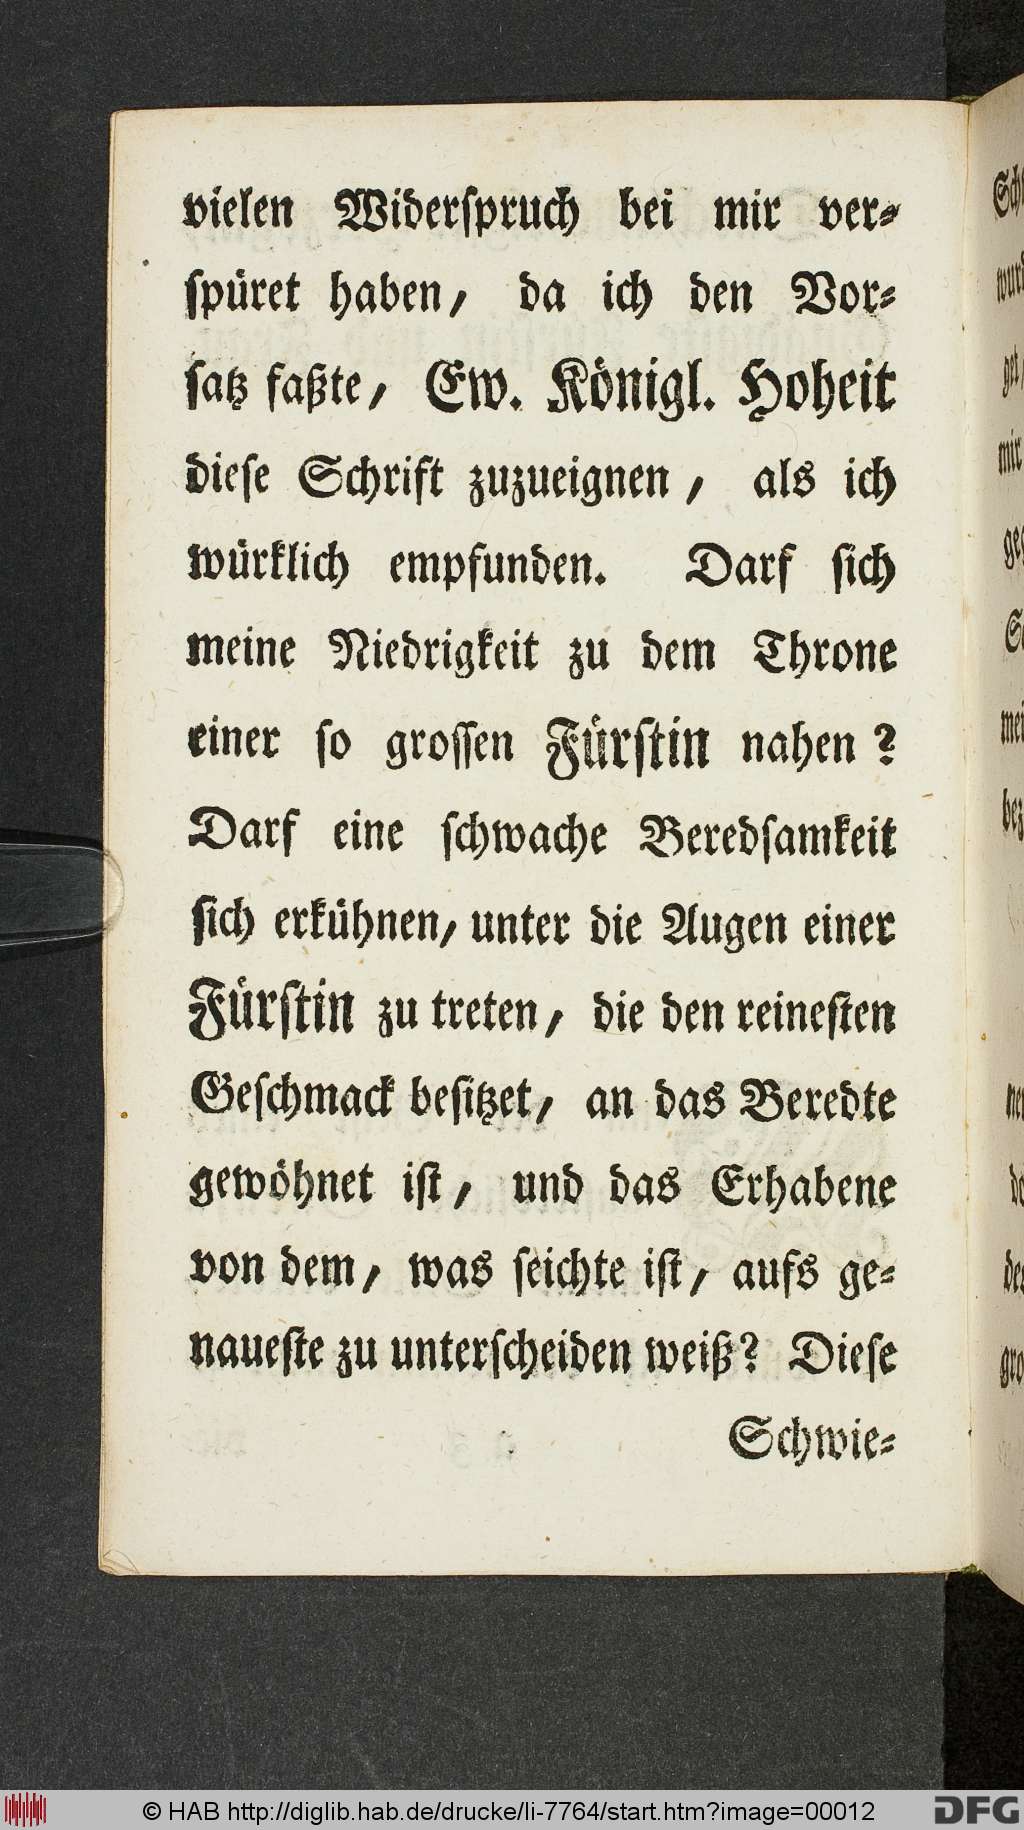 vielen Widerſpruch bei mir ver⸗
ſpüret haben, da ich den Vor⸗
ſatz faßte, Ew. Königl. Hoheit
dieſe Schrift zuzueignen, als ich
würklich empfunden. Darf ſich
meine Niedrigkeit zu dem Throne
einer ſo groſſen Fürſtin nahen?
Darf eine ſchwache Beredſamkeit
ſich erkühnen, unter die Augen einer
Fürſtin zu treten, die den reineſten
Geſchmack beſitzet, an das Beredte
gewöhnet iſt, und das Erhabene
von dem, was ſeichte iſt, aufs ge⸗
naueſte zu unterſcheiden weiß? Dieſe
Schwie⸗
© HAB http://diglib.hab.de/drucke/li-7764/start.htm?image=00012
DFG